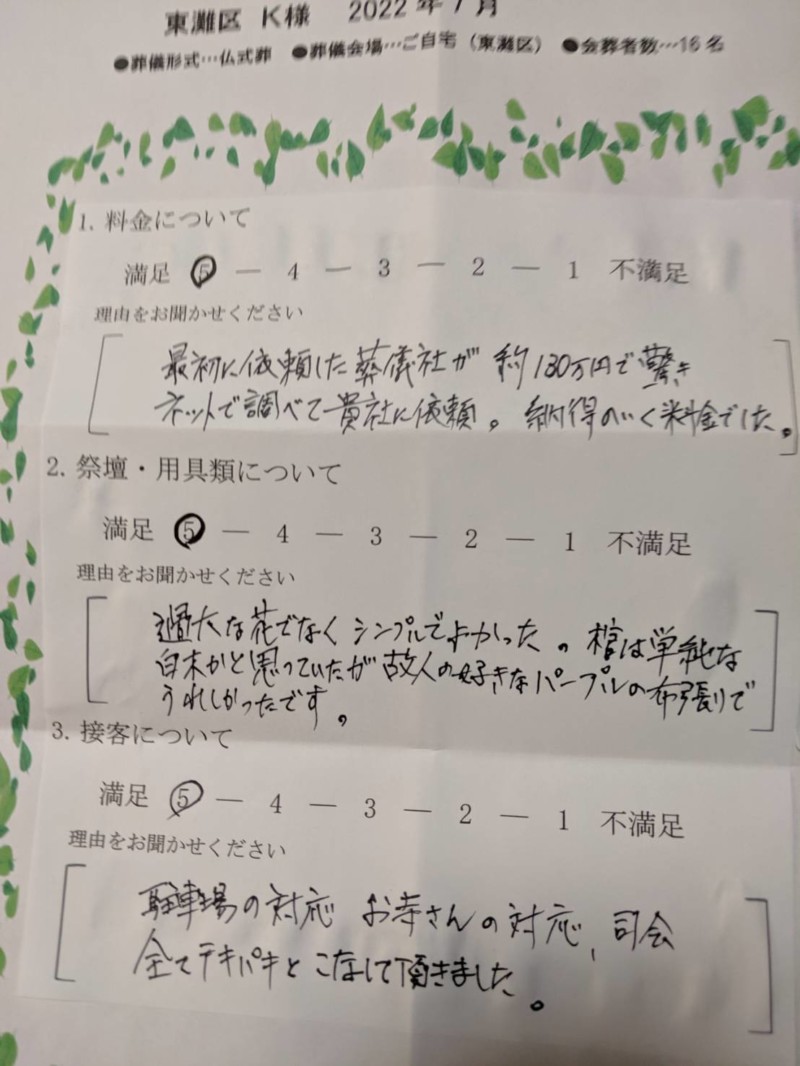 東灘区 K様 2022年7月
●葬儀形式…仏式葬 ●葬儀会場…ご自宅(東灘区) ●会葬者数…16名
1. 料金について
満足 5 — 4 — 3 — 2 — 1 不満足
理由をお聞かせください
最初に依頼した葬儀社が 約130万円で驚き
ネットで調べて貴社に依頼。 納得のいく料金でした。
2. 祭壇・用具類について
満足 5 — 4 — 3 — 2 — 1 不満足
理由をお聞かせください
過大な花でなく シンプルでよかった。棺は単純な
白木かと思っていたが故人の好きなパープルの布張りで
うれしかったです。
3. 接客について
満足 5 — 4 — 3 — 2 — 1 不満足
理由をお聞かせください
駐車場の対応 お寺さんの対応、司会
全てテキパキとこなして頂きました。